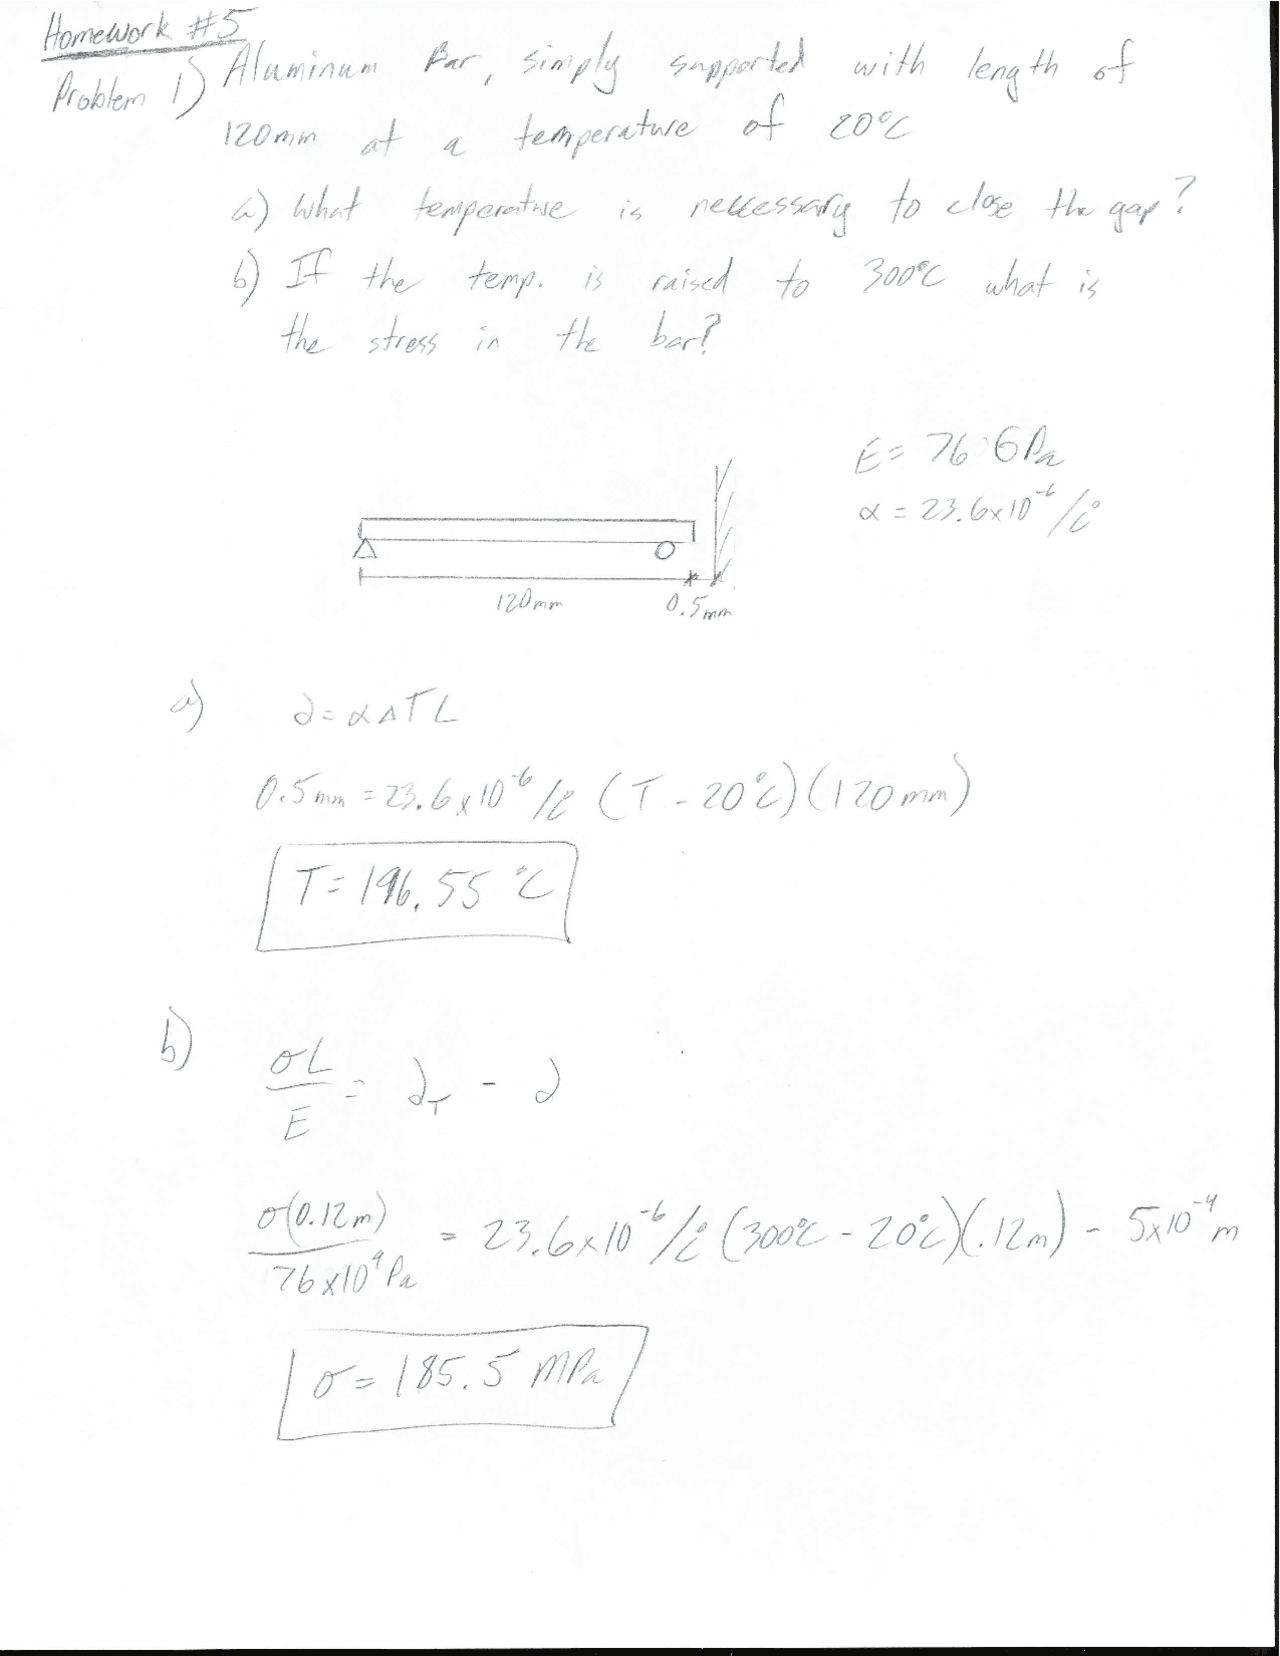 Homework #5
Problem 1) Aluminum Bar, simply supported with length of
120mm at a temperature of 20°C
a) What temperature is neccessary to close the gap?
b) If the temp. is raised to 300°C what is
the stress in the bar?
E = 76 GPa
α = 23.6x10⁻⁶/°C
120mm
0.5mm
a) ∂ = αΔTL
0.5mm = 23.6x10⁻⁶/°C (T - 20°C)(120mm)
T = 196.55 °C
b) σL/E = ∂_T - ∂
σ(0.12m)/76x10⁹Pa = 23.6x10⁻⁶/°C (300°C - 20°C)(.12m) - 5x10⁻⁴m
σ = 185.5 MPa